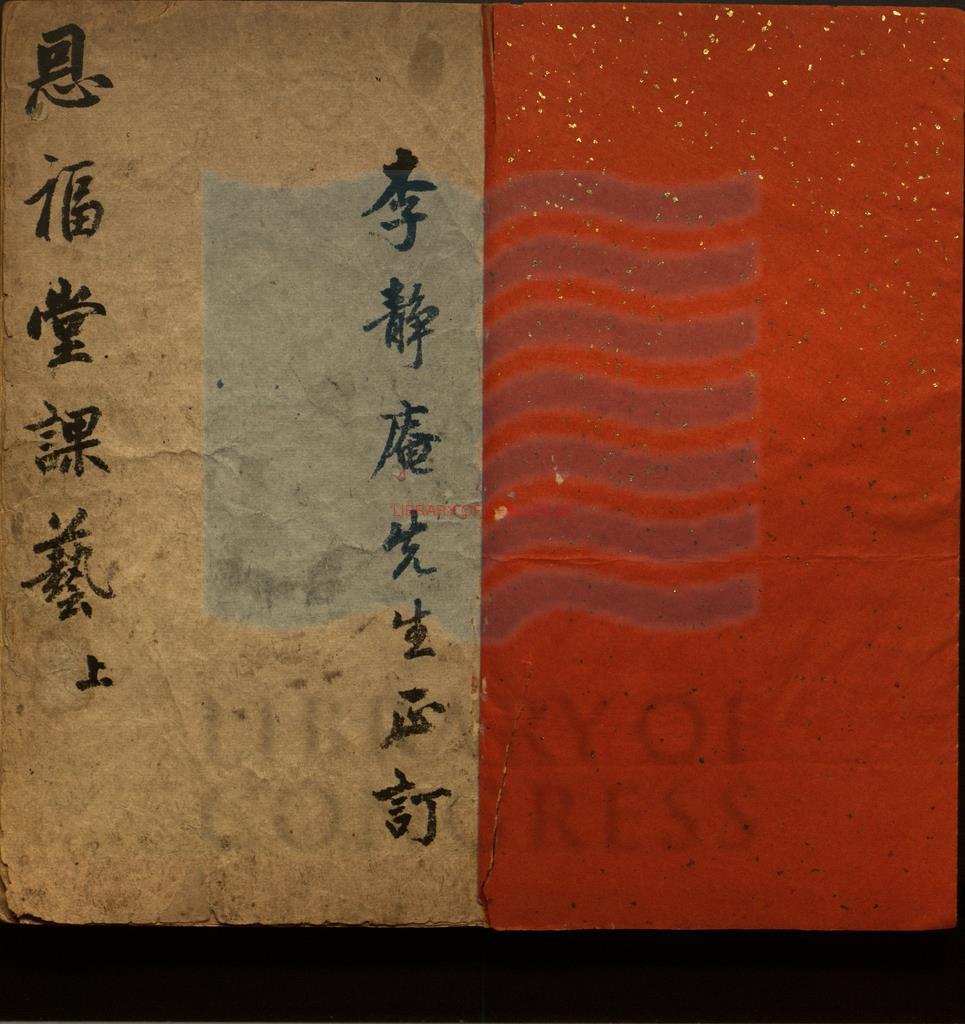 李靜庵先生正訂
恩福堂課藝 上
LIBRARY OF CONGRESS
LIBRARY OF
CONGRESS